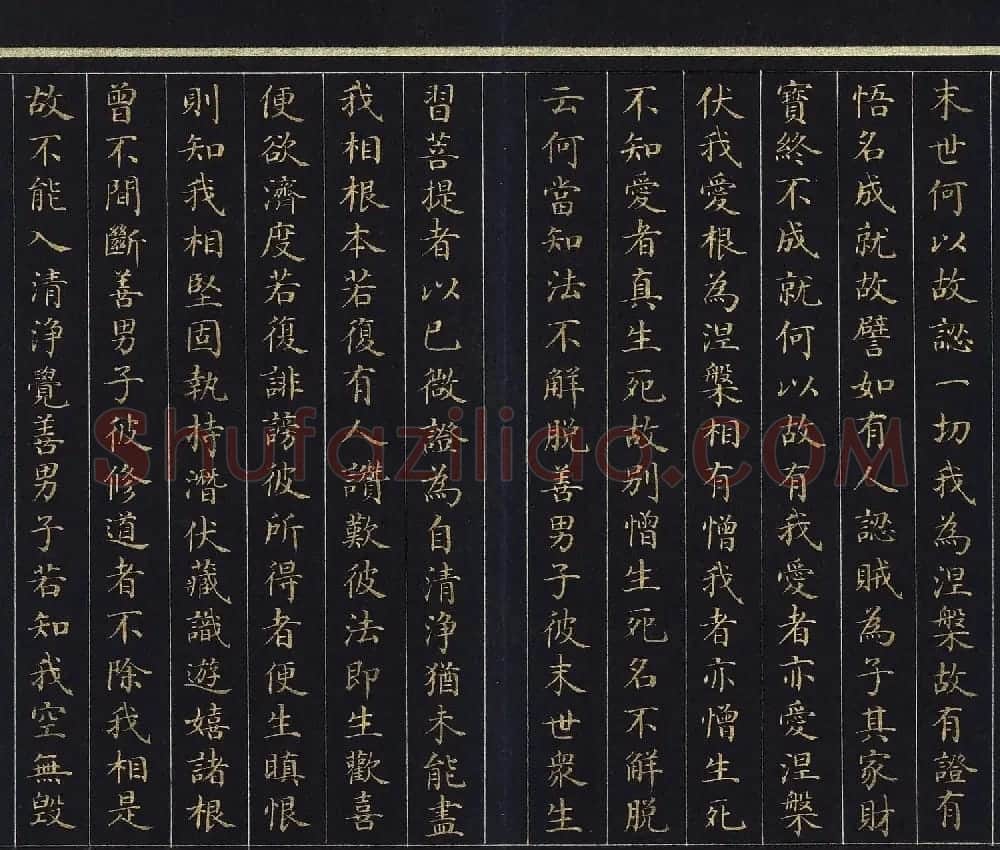 末世何以故認一切我為涅槃故有證有
悟名成就故譬如有人認賊為子其家財
寶終不成就何以故有我愛者亦愛涅槃
伏我愛根為涅槃相有憎我者亦憎生死
不知愛者真生死故別憎生死名不解脫
云何當知法不解脫善男子彼末世眾生
習菩提者以己微證為自清淨猶未能盡
我相根本若復有人讚歎彼法即生歡喜
便欲濟度若復誹謗彼所得者便生瞋恨
則知我相堅固執持潛伏藏識遊嬉諸根
曾不間斷善男子彼修道者不除我相是
故不能入清淨覺善男子若知我空無毀
Shufaziliao.com